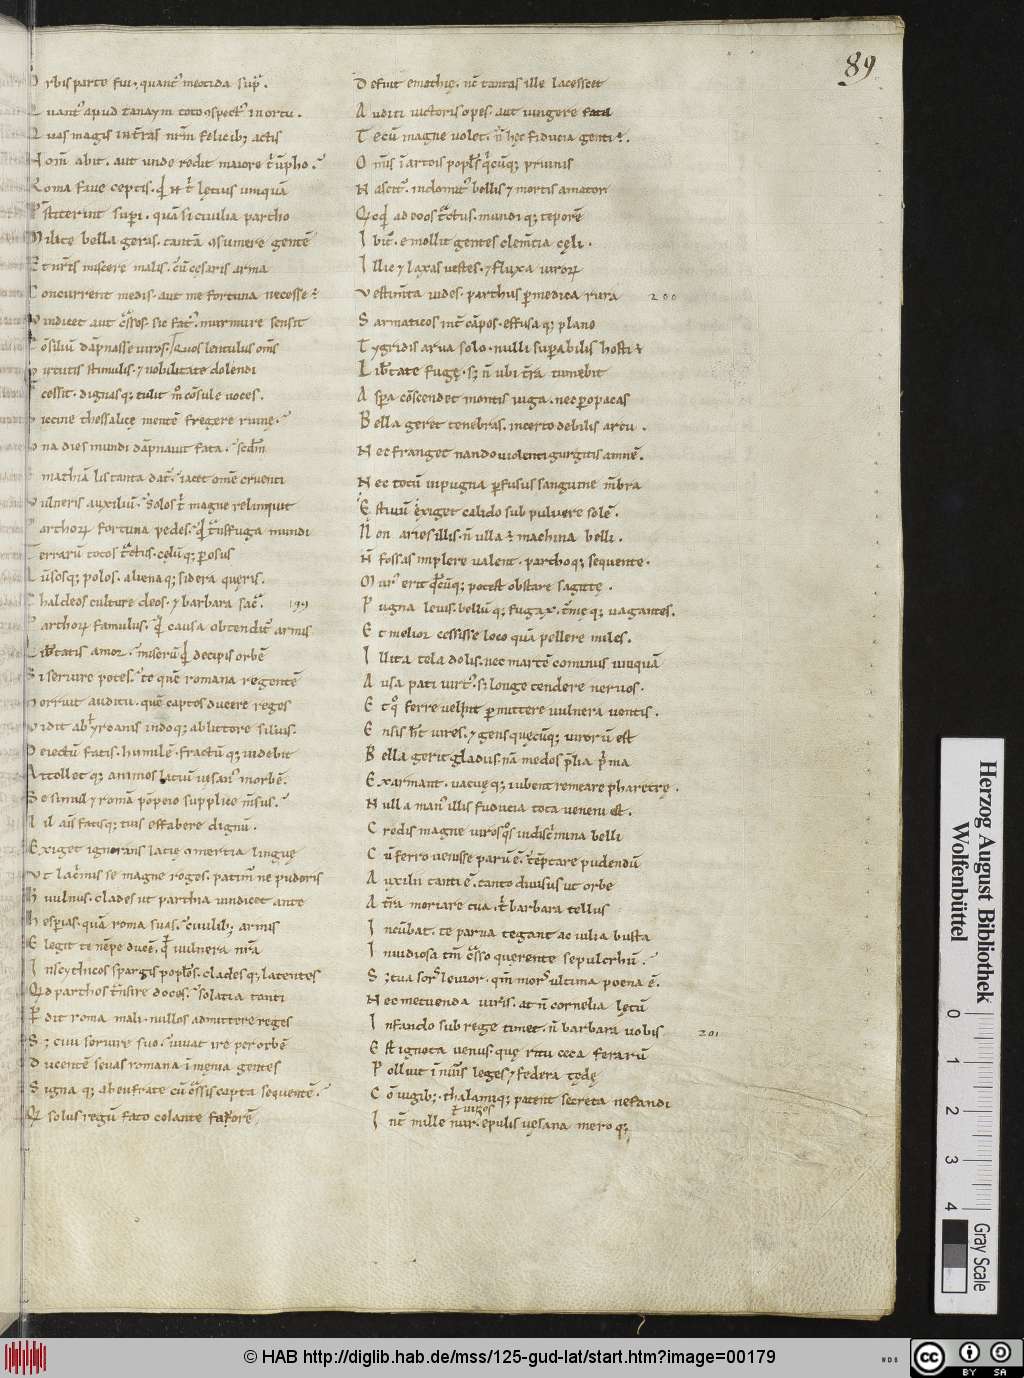 89
O rbis parte fui, quantꝰ meotida supͣ.
Q uantꝰ apud tanaym toto ꝯspectꝰ in ortu.
Q uas magis in t̄ras nr̄m felicibꝫ actis
N om̄ abit. aut unde redit maiore t̓ūpho.
R oma faue ceptis. qd̓ n̄ t̓ lętius umquā
P st̄iterint supi. quā si ciuilia partho
M ilite bella geras. tantā ꝯsumere gentē
E t nr̄is miscere malis. cū cesaris arma
C oncurrent medis. aut me fortuna necesse ē
V indicet aut c̓ssos. sic fatꝰ. murmure sensit
C ōsiliū dāpnasse uiros. Quos lentulus om̄s
V irtutis stimulis. ⁊ nobilitate dolendi
P cessit. dignasqꝫ tulit m̊ cōsule uoces.
S iccine thessalicę mentē fregere ruinę.
V na dies mundi dāpnauit fata. scd̄m
E mathiā lis tanta dat̓. iacet om̄e cruenti
V ulneris auxiliū. solos t̓ magne relinquit
P arthoꝝ fortuna pedes. qd̓ t̓nsfuga mundi
T errarū totos tͣctus. cęlūqꝫ ꝑosus
A ūsosqꝫ polos. alienaqꝫ sidera quęris.
C haldeos culture deos. ⁊ barbara sacͣ. 199
P arthoꝝ famulus. qd̓ causa obtenditꝰ armis
L ibt̄atis amor. miserū qd̓ decipis orbē
S i seruire potes. te quē romana regentē
H orruit auditu. quē captos ducere reges
V idit ab hyrcanis indoqꝫ abluttore siluis.
D eiectū fatis. humilē. fractū qꝫ uidebit
A ttollet qꝫ animos latiū uęsanꝰ in orbē.
S e simul ⁊ romā pōpeio supplice m̄sus.
N il aīs fatisqꝫ tuis effabere dignū.
E xiget ignorans latię ꝯmertia linguę
V t lac̓mis se magne roges. patim̄ ne pudoris
H uulnus. clades ut parthia uindicet ante
H esperias. quā roma suas. ciuilibꝫ armis
E legit te nēpe ducē. qd̓ uulnera nr̄a
I n scythicos spargis popl̄os. cladesqꝫ latentes
Qd̓ parthos t̓nsire doces. solatia tanti
P dit roma mali. nullos admittere reges
S ꝫ ciui seruire suo. iuuat ire per orbē
D ucentē seuas romana ī męnia gentes
S igna qꝫ ab eufrate cū c̓ssis capta sequentē.
Q solus regū fato celante fauorē
D efuit emathię. nc̄ tantas ille lacesset
A uditi uictoris opes. aut iungere fata
T ecū magne uolet. n̄ hęc fiducia genti ē.
O m̄is ī arctois popl̄s qͥcūqꝫ pruinis
N ascitꝰ. indomitꝰ bellis ⁊ mortis amator
Qcqd̓ ad eoos tͣctus. mundi qꝫ tepore
I bitꝰ. emollit gentes clem̄tia cęli.
I llic ⁊ laxas uestes. ⁊ fluxa uiroꝝ
V estim̄ta uides. parthus ꝑ medica rura 200
S armaticos int̄ cāpos. effusa qꝫ plano
T ygridis arua solo. nulli suꝑabilis hosti ē
L ibt̄tate fugę. sꝫ n̄ ubi t̄ra tumebit
A spera cōscendet montis iuga. nec ꝑ opacas
B ella geret tenebras. incerto debilis arcu.
N ec franget nando uiolenti gurgitis amnē.
N ec totū in pugna ꝑfusus sanguine m̄bra
E stiuū exiget calido sub puluere solē.
N on aries illis. n̄ ulla ē machina belli.
N̄ fossas implere ualent. parthoqꝫ sequente.
M urꝰ erit qͥcūqꝫ potest obstare sagittę.
P ugna leuis. bellū qꝫ fugax. t̄mę qꝫ uagantes.
E t melior cessisse loco quā pellere miles.
I llita tela dolis. nec martē cominus umquā
A usa pati uirtꝰ. sꝫ longe tendere neruos.
E t q̊ ferre uelint ꝑmittere uulnera uentis.
E nsis hʒ uires. ⁊ gens quęcūqꝫ uirorū est
B ella gerit gladiis nā medos p̄lia p̓ma
E xarmant. uacuęqꝫ iubent remeare pharetrę.
N ulla manꝰ illis fiducia tota ueneni est.
C redis magne uiros qͦs in discͥmina belli
C ū ferro uenisse parū ē. tēptare pudendū
A uxiliū tanti ē. tanto diuisus ut orbe
A t̄ra moriare tua. t̓ barbara tellus
I ncūbat. te parua tegant ac uilia busta
I nuidiosa tm̄ c̓sso quęrente sepulchrū.
S ꝫ tua sors leuior. qm̄ mors ultima poena ē.
N ec metuenda uiris. at n̄ cornelia lętū
I nfando sub rege timet. n̄ barbara nobis 201
E st ignota uenus. quę ritu ceca ferarū
P olluit īnūis leges ⁊ federa tędę
C ōiugibꝫ. thalamiqꝫ patent secreta nefandi
ł nurus
I nt̄ mille nur. epulis uęsana meroqꝫ
Herzog August Bibliothek
Wolfenbüttel
0 1 2 3 4
Gray Scale
© HAB http://diglib.hab.de/mss/125-gud-lat/start.htm?image=00179
WDB
cc BY SA